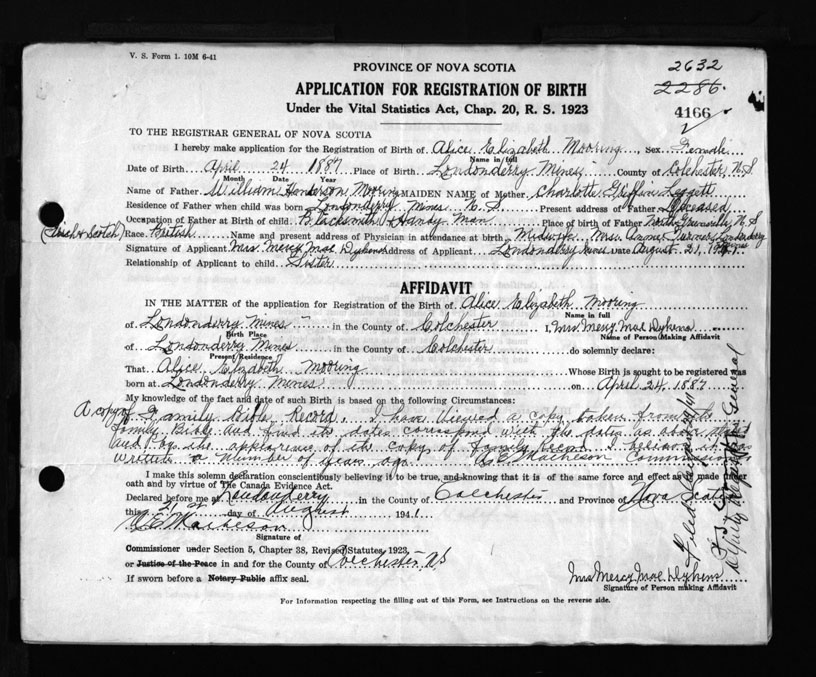 V. S. Form 1. 10M 6-41
PROVINCE OF NOVA SCOTIA
2632
APPLICATION FOR REGISTRATION OF BIRTH
2286
Under the Vital Statistics Act, Chap. 20, R. S. 1923
4166
TO THE REGISTRAR GENERAL OF NOVA SCOTIA
I hereby make application for the Registration of Birth of Alice Elizabeth Mooring, Sex Female
Name in full
Date of Birth April 24 1887 Place of Birth Londonderry Mines County of Colchester, N.S
Month Date Year
Name of Father William Henderson Mooring MAIDEN NAME of Mother Charlotte Leggett
Residence of Father when child was born Londonderry Mines N.S. Present address of Father Deceased
Occupation of Father at Birth of child Blacksmith & Handy Man Place of birth of Father North N.S
(Irish & Scotch) Race British Name and present address of Physician in attendance at birth Midwife Mrs. Turner Londonderry Mines
Signature of Applicant Mrs Mercy Mae Dykens Address of Applicant Londonderry Mines Date August 21, 1941.
Relationship of Applicant to child Sister
AFFIDAVIT
IN THE MATTER of the application for Registration of the Birth of Alice Elizabeth Mooring
Name in full
of Londonderry Mines in the County of Colchester I, Mrs Mercy Mae Dykens
Birth Place Name of Person Making Affidavit
of Londonderry Mines in the County of Colchester do solemnly declare:
Present Residence
That Alice Elizabeth Mooring Whose Birth is sought to be registered was
born at Londonderry Mines on April 24, 1887
My knowledge of the fact and date of such Birth is based on the following Circumstances:
A copy of Family Bible Record. I have viewed a copy taken from the
family Bible and find its dates correspond with the dates as above stated
and by the appearance of the copy of family record I believe it was
written a number of years ago. Matheson Commissioner
I make this solemn declaration conscientiously believing it to be true, and knowing that it is of the same force and effect as is made under
oath and by virtue of The Canada Evidence Act.
Declared before me at Londonderry in the County of Colchester and Province of Nova Scotia
this 21st day of August 1941
Matheson
Signature of
Commissioner under Section 5, Chapter 38, Revised Statutes, 1923,
or Justice of the Peace in and for the County of Colchester N S
If sworn before a Notary Public affix seal.
Mrs Mercy Mae Dykens
Signature of Person making Affidavit
For Information respecting the filling out of this Form, see Instructions on the reverse side.
Filed
Deputy General